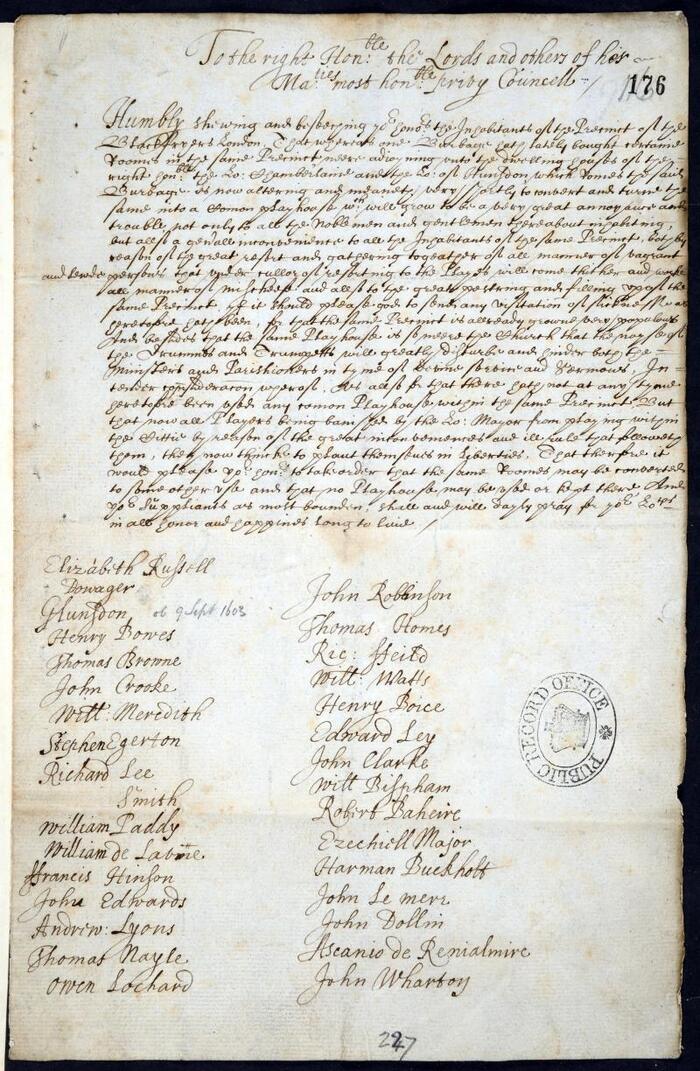 To the right Hon:ble the Lords and others of her
Ma:ties most hon:ble privy Councell /
176
Humbly shewing and beseeching yor honors the Inhabitants of the Precinct of the
Blackfryers London, That whereas one Burbage hath lately bought certaine
roomes in the same Precinct neere adioyning unto the dwelling houses of the
right honble the Lo: Chamberlaine and the Lo: of Hunsdon, which romes the said
Burbage is now altering and meaneth very shortly to convert and turne the
same into a comon playhouse wch will grow to be a very great annoyance and
trouble, not only to all the Noblemen and gentlemen thereabout inhabiting,
but allso a generall inconvenience to all the Inhabitants of the same Precinct, both by
reason of the great resort and gathering togeather of all manner of vagrant
and lewde persons that under cullor of resorting to the Playes will come thither and worke
all manner of mischeefe and allso to the great pestring and filling up of the
same Precinct, yf it should please God to send any visitation of sicknesse as
heretofore hath been, for that the same Precinct is allready growne very populous
And besides that the same Playhouse is so neere the Church that the noyse of
the Drummes and Trumpetts will greatly disturbe and hinder both the
Ministers and Parishioners in tyme of devine service and Sermons, In
tender consideracon wherof, As allso for that there hath not at any tyme
heretofore been used any comon Playhouse within the same Precinct, But
that now all Players being banished by the Lo: Mayor from playing within
the Cittie by reason of the great inconveniences and ill rule that followeth
them, they now thincke to plant themselves in Liberties, That therefore it
would please yor honors to take order that the same roomes may be converted
to some other use and that no Playhouse may be used or kept there And
yor Suppliants as most bounden, shall and will dayly pray for yor Lops
in all honor and happines long to live /
Elizabeth Russell
Dowager
G Hunsdon ob 9 Sept 1603
Henry Bowes
Thomas Browne
John Crooke
Will: Meredith
Stephen Egerton
Richard Lee
Smith
William Paddy
William de Lavine
Francis Hinson
John Edwards
Andrew: Lyons
Thomas Nayle
Owen Lochard
John Robbinson
Thomas Homes
Ric: Feild
Will: Watts
Henry Boice
Edward Ley
John Clarke
Will Bispham
Robert Baheire
Ezechiell Major
Harman Buckholt
John Le mere
John Dollin
Ascanio de Renialmire
John Wharton
PUBLIC RECORD OFFICE
227